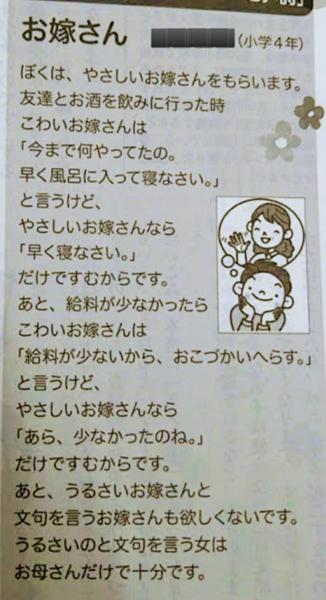 お嫁さん (小学4年)
ぼくは、やさしいお嫁さんをもらいます。
友達とお酒を飲みに行った時
こわいお嫁さんは
「今まで何やってたの。
早く風呂に入って寝なさい。」
と言うけど、
やさしいお嫁さんなら
「早く寝なさい。」
だけですむからです。
あと、給料が少なかったら
こわいお嫁さんは
「給料が少ないから、おこづかいへらす。」
と言うけど、
やさしいお嫁さんなら
「あら、少なかったのね。」
だけですむからです。
あと、うるさいお嫁さんと
文句を言うお嫁さんも欲しくないです。
うるさいのと文句を言う女は
お母さんだけで十分です。